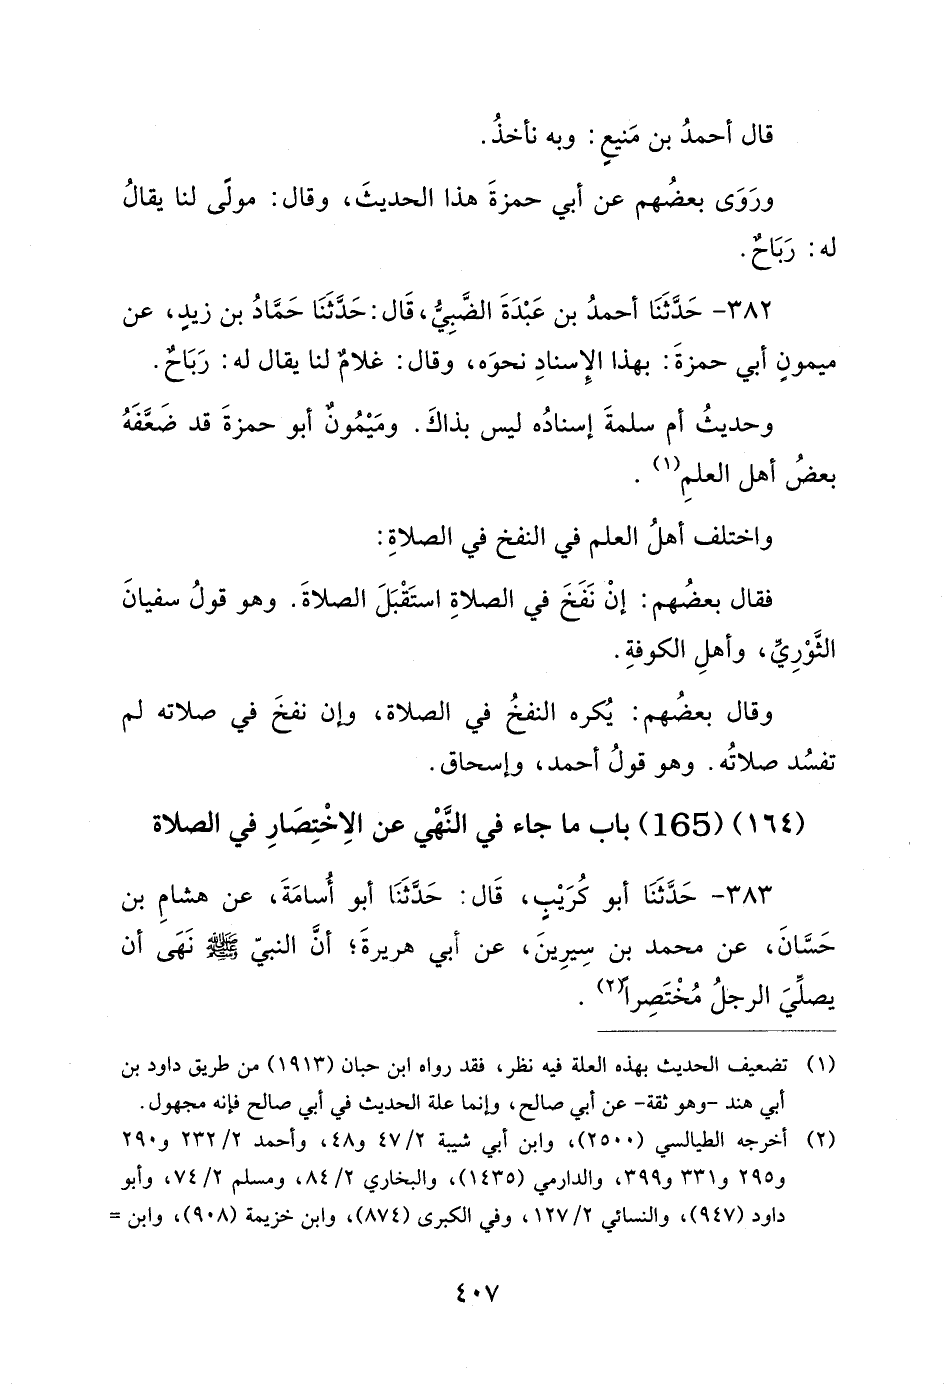 قال أحمدُ بن مَنيعٍ: وبه نأخذُ.
ورَوَى بعضُهم عن أبي حمزةَ هذا الحديثَ، وقال: مولًى لنا يقالُ
له: رَبَاحٌ.
٣٨٢- حَدَّثَنَا أحمدُ بن عَبْدَةَ الضَّبِيُّ، قَال: حَدَّثَنَا حَمَّادُ بن زيدٍ، عن
ميمونٍ أبي حمزةَ: بهذا الإِسنادِ نحوَه، وقال: غلامٌ لنا يقال له: رَبَاحٌ.
وحديثُ أم سلمةَ إسنادُه ليس بذاكَ. ومَيْمُونٌ أبو حمزةَ قد ضَعَّفَهُ
بعضُ أهل العلمِ(١).
واختلف أهلُ العلم في النفخ في الصلاةِ:
فقال بعضُهم: إنْ نَفَخَ في الصلاةِ استَقْبَلَ الصلاةَ. وهو قولُ سفيانَ
الثَّوْرِيِّ، وأهلِ الكوفةِ.
وقال بعضُهم: يُكره النفخُ في الصلاة، وإن نفخَ في صلاته لم
تفسُد صلاتُه. وهو قولُ أحمد، وإسحاق.
(١٦٤) (165) باب ما جاء في النَّهْي عن الِاخْتِصَارِ في الصلاة
٣٨٣- حَدَّثَنَا أبو كُرَيْبٍ، قَال: حَدَّثَنَا أبو أُسامَةَ، عن هشامِ بن
حَسَّانَ، عن محمد بن سِيرِينَ، عن أبي هريرةَ؛ أنَّ النبيّ ﷺ نَهَى أن
يصلِّيَ الرجلُ مُخْتَصِراً(٢).
(١) تضعيف الحديث بهذه العلة فيه نظر، فقد رواه ابن حبان (١٩١٣) من طريق داود بن
أبي هند -وهو ثقة- عن أبي صالح، وإنما علة الحديث في أبي صالح فإنه مجهول.
(٢) أخرجه الطيالسي (٢٥٠٠)، وابن أبي شيبة ٤٧/٢ و٤٨، وأحمد ٢٣٢/٢ و٢٩٠
و٢٩٥ و٣٣١ و٣٩٩، والدارمي (١٤٣٥)، والبخاري ٨٤/٢، ومسلم ٧٤/٢، وأبو
داود (٩٤٧)، والنسائي ١٢٧/٢، وفي الكبرى (٨٧٤)، وابن خزيمة (٩٠٨)، وابن =
٤٠٧